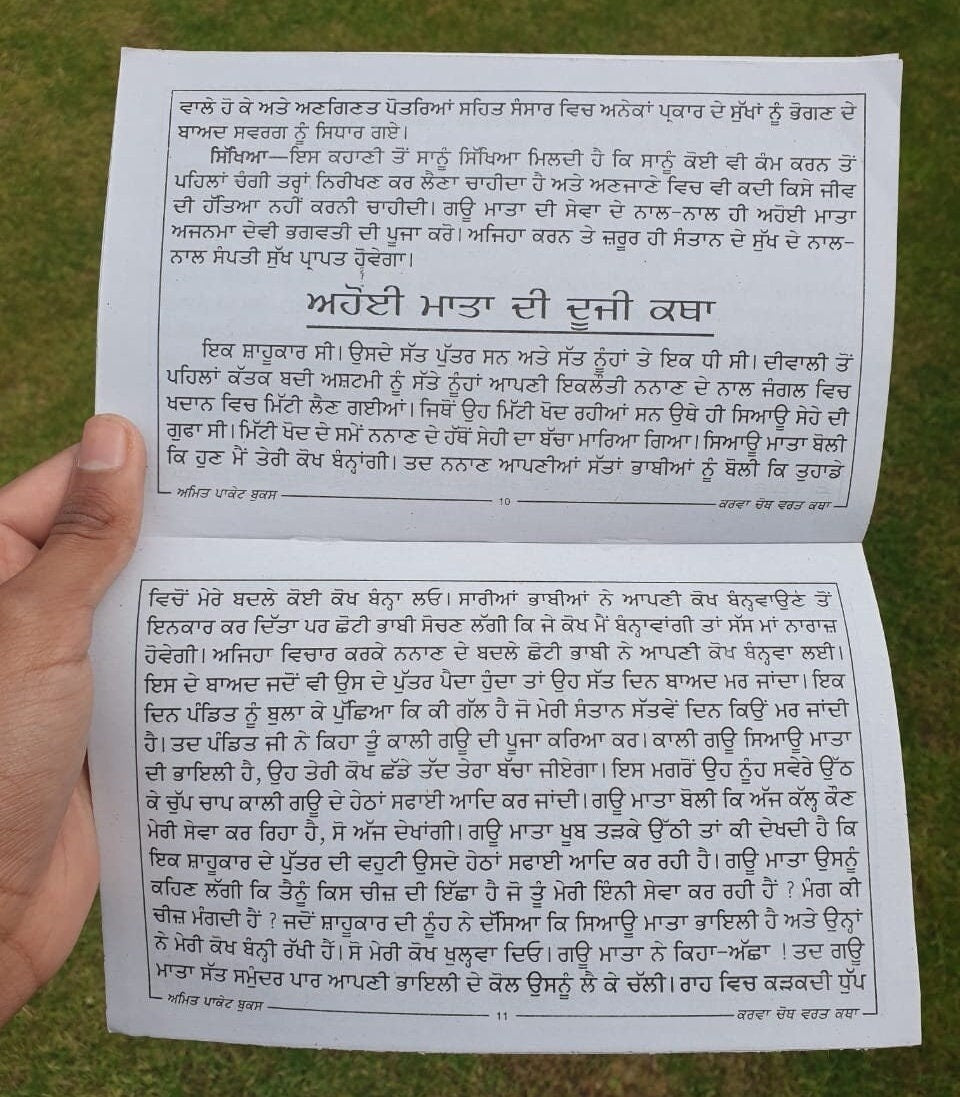 ਵਾਲੇ ਹੋ ਕੇ ਅਤੇ ਅਣਗਿਣਤ ਪੋਤਰਿਆਂ ਸਹਿਤ ਸੰਸਾਰ ਵਿਚ ਅਨੇਕਾਂ ਪ੍ਰਕਾਰ ਦੇ ਸੁੱਖਾਂ ਨੂੰ ਭੋਗਣ ਦੇ
ਬਾਅਦ ਸਵਰਗ ਨੂੰ ਸਿਧਾਰ ਗਏ।
ਸਿੱਖਿਆ—ਇਸ ਕਹਾਣੀ ਤੋਂ ਸਾਨੂੰ ਸਿੱਖਿਆ ਮਿਲਦੀ ਹੈ ਕਿ ਸਾਨੂੰ ਕੋਈ ਵੀ ਕੰਮ ਕਰਨ ਤੋਂ
ਪਹਿਲਾਂ ਚੰਗੀ ਤਰ੍ਹਾਂ ਨਿਰੀਖਣ ਕਰ ਲੈਣਾ ਚਾਹੀਦਾ ਹੈ ਅਤੇ ਅਣਜਾਣੇ ਵਿਚ ਵੀ ਕਦੀ ਕਿਸੇ ਜੀਵ
ਦੀ ਹੱਤਿਆ ਨਹੀਂ ਕਰਨੀ ਚਾਹੀਦੀ। ਗਊ ਮਾਤਾ ਦੀ ਸੇਵਾ ਦੇ ਨਾਲ-ਨਾਲ ਹੀ ਅਹੋਈ ਮਾਤਾ
ਅਜਨਮਾ ਦੇਵੀ ਭਗਵਤੀ ਦੀ ਪੂਜਾ ਕਰੋ। ਅਜਿਹਾ ਕਰਨ ਤੇ ਜ਼ਰੂਰ ਹੀ ਸੰਤਾਨ ਦੇ ਸੁੱਖ ਦੇ ਨਾਲ-
ਨਾਲ ਸੰਪਤੀ ਸੁੱਖ ਪ੍ਰਾਪਤ ਹੋਵੇਗਾ।
ਅਹੋਈ ਮਾਤਾ ਦੀ ਦੂਜੀ ਕਥਾ
ਇਕ ਸ਼ਾਹੂਕਾਰ ਸੀ। ਉਸਦੇ ਸੱਤ ਪੁੱਤਰ ਸਨ ਅਤੇ ਸੱਤ ਨੂੰਹਾਂ ਤੇ ਇਕ ਧੀ ਸੀ। ਦੀਵਾਲੀ ਤੋਂ
ਪਹਿਲਾਂ ਕੱਤਕ ਬਦੀ ਅਸ਼ਟਮੀ ਨੂੰ ਸੱਤੇ ਨੂੰਹਾਂ ਆਪਣੀ ਇਕਲੌਤੀ ਨਨਾਣ ਦੇ ਨਾਲ ਜੰਗਲ ਵਿਚ
ਖਦਾਨ ਵਿਚ ਮਿੱਟੀ ਲੈਣ ਗਈਆਂ। ਜਿਥੋਂ ਉਹ ਮਿੱਟੀ ਖੋਦ ਰਹੀਆਂ ਸਨ ਉਥੇ ਹੀ ਸਿਆਊ ਸੇਹੇ ਦੀ
ਗੁਫਾ ਸੀ। ਮਿੱਟੀ ਖੋਦ ਦੇ ਸਮੇਂ ਨਨਾਣ ਦੇ ਹੱਥੋਂ ਸੇਹੀ ਦਾ ਬੱਚਾ ਮਾਰਿਆ ਗਿਆ। ਸਿਆਊ ਮਾਤਾ ਬੋਲੀ
ਕਿ ਹੁਣ ਮੈਂ ਤੇਰੀ ਕੋਖ ਬੰਨ੍ਹਾਂਗੀ। ਤਦ ਨਨਾਣ ਆਪਣੀਆਂ ਸੱਤਾਂ ਭਾਬੀਆਂ ਨੂੰ ਬੋਲੀ ਕਿ ਤੁਹਾਡੇ
ਅਮਿਤ ਪਾਕੇਟ ਬੁਕਸ 10 ਕਰਵਾ ਚੌਥ ਵਰਤ ਕਥਾ
ਵਿਚੋਂ ਮੇਰੇ ਬਦਲੇ ਕੋਈ ਕੋਖ ਬੰਨ੍ਹਾ ਲਓ। ਸਾਰੀਆਂ ਭਾਬੀਆਂ ਨੇ ਆਪਣੀ ਕੋਖ ਬੰਨ੍ਹਵਾਉਣ ਤੋਂ
ਇਨਕਾਰ ਕਰ ਦਿੱਤਾ ਪਰ ਛੋਟੀ ਭਾਬੀ ਸੋਚਣ ਲੱਗੀ ਕਿ ਜੇ ਕੋਖ ਮੈਂ ਬੰਨ੍ਹਾਵਾਂਗੀ ਤਾਂ ਸੱਸ ਮਾਂ ਨਾਰਾਜ਼
ਹੋਵੇਗੀ। ਅਜਿਹਾ ਵਿਚਾਰ ਕਰਕੇ ਨਨਾਣ ਦੇ ਬਦਲੇ ਛੋਟੀ ਭਾਬੀ ਨੇ ਆਪਣੀ ਕੋਖ ਬੰਨ੍ਹਵਾ ਲਈ।
ਇਸ ਦੇ ਬਾਅਦ ਜਦੋਂ ਵੀ ਉਸ ਦੇ ਪੁੱਤਰ ਪੈਦਾ ਹੁੰਦਾ ਤਾਂ ਉਹ ਸੱਤ ਦਿਨ ਬਾਅਦ ਮਰ ਜਾਂਦਾ। ਇਕ
ਦਿਨ ਪੰਡਿਤ ਨੂੰ ਬੁਲਾ ਕੇ ਪੁੱਛਿਆ ਕਿ ਕੀ ਗੱਲ ਹੈ ਜੋ ਮੇਰੀ ਸੰਤਾਨ ਸੱਤਵੇਂ ਦਿਨ ਕਿਉਂ ਮਰ ਜਾਂਦੀ
ਹੈ। ਤਦ ਪੰਡਿਤ ਜੀ ਨੇ ਕਿਹਾ ਤੂੰ ਕਾਲੀ ਗਊ ਦੀ ਪੂਜਾ ਕਰਿਆ ਕਰ। ਕਾਲੀ ਗਊ ਸਿਆਊ ਮਾਤਾ
ਦੀ ਭਾਇਲੀ ਹੈ, ਉਹ ਤੇਰੀ ਕੋਖ ਛੱਡੇ ਤੱਦ ਤੇਰਾ ਬੱਚਾ ਜੀਏਗਾ। ਇਸ ਮਗਰੋਂ ਉਹ ਨੂੰਹ ਸਵੇਰੇ ਉੱਠ
ਕੇ ਚੁੱਪ ਚਾਪ ਕਾਲੀ ਗਊ ਦੇ ਹੇਠਾਂ ਸਫਾਈ ਆਦਿ ਕਰ ਜਾਂਦੀ। ਗਊ ਮਾਤਾ ਬੋਲੀ ਕਿ ਅੱਜ ਕੱਲ੍ਹ ਕੌਣ
ਮੇਰੀ ਸੇਵਾ ਕਰ ਰਿਹਾ ਹੈ, ਸੋ ਅੱਜ ਦੇਖਾਂਗੀ। ਗਊ ਮਾਤਾ ਖੂਬ ਤੜਕੇ ਉੱਠੀ ਤਾਂ ਕੀ ਦੇਖਦੀ ਹੈ ਕਿ
ਇਕ ਸ਼ਾਹੂਕਾਰ ਦੇ ਪੁੱਤਰ ਦੀ ਵਹੁਟੀ ਉਸਦੇ ਹੇਠਾਂ ਸਫਾਈ ਆਦਿ ਕਰ ਰਹੀ ਹੈ। ਗਊ ਮਾਤਾ ਉਸਨੂੰ
ਕਹਿਣ ਲੱਗੀ ਕਿ ਤੈਨੂੰ ਕਿਸ ਚੀਜ਼ ਦੀ ਇੱਛਾ ਹੈ ਜੋ ਤੂੰ ਮੇਰੀ ਇੰਨੀ ਸੇਵਾ ਕਰ ਰਹੀ ਹੈਂ ? ਮੰਗ ਕੀ
ਚੀਜ਼ ਮੰਗਦੀ ਹੈਂ ? ਜਦੋਂ ਸ਼ਾਹੂਕਾਰ ਦੀ ਨੂੰਹ ਨੇ ਦੱਸਿਆ ਕਿ ਸਿਆਊ ਮਾਤਾ ਭਾਇਲੀ ਹੈ ਅਤੇ ਉਨ੍ਹਾਂ
ਨੇ ਮੇਰੀ ਕੋਖ ਬੰਨ੍ਹੀ ਰੱਖੀ ਹੈਂ। ਸੋ ਮੇਰੀ ਕੋਖ ਖੁਲ੍ਹਵਾ ਦਿਓ। ਗਊ ਮਾਤਾ ਨੇ ਕਿਹਾ-ਅੱਛਾ ! ਤਦ ਗਊ
ਮਾਤਾ ਸੱਤ ਸਮੁੰਦਰ ਪਾਰ ਆਪਣੀ ਭਾਇਲੀ ਦੇ ਕੋਲ ਉਸਨੂੰ ਲੈ ਕੇ ਚੱਲੀ। ਰਾਹ ਵਿਚ ਕੜਕਦੀ ਧੁੱਪ
ਅਮਿਤ ਪਾਕੇਟ ਬੁਕਸ 11 ਕਰਵਾ ਚੌਥ ਵਰਤ ਕਥਾ